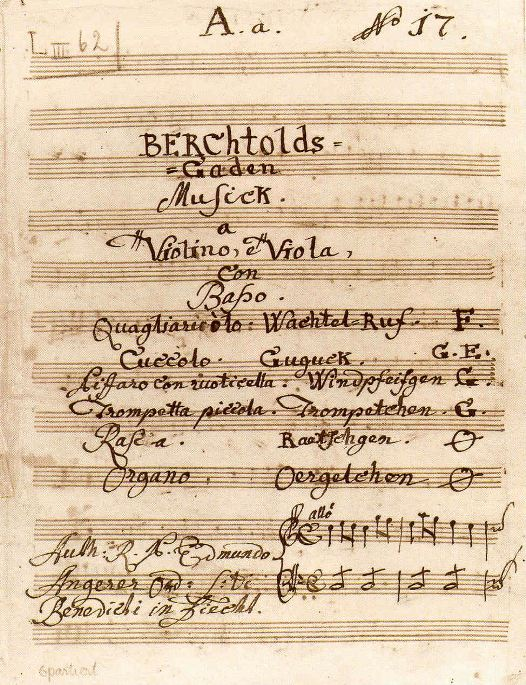 A. a. No 17.
L III 62
BERChtolds=
=Gaden
Musick.
a
Violino, è Viola,
Con
Baßo.
Quagliariçòlo: Wachtel=Ruf. F.
Cuccolo. Guguck. G. E.
Lifaro con ruoticella: Windpfeifgen G.
Trompetta piccola. Trompetchen. G.
Rasca. Raetschgen.
Organo. Oergelchen
allo
Auth: R. P. Edmundo
Angerer Ord: S: ti
Benedicti in Fiecht.